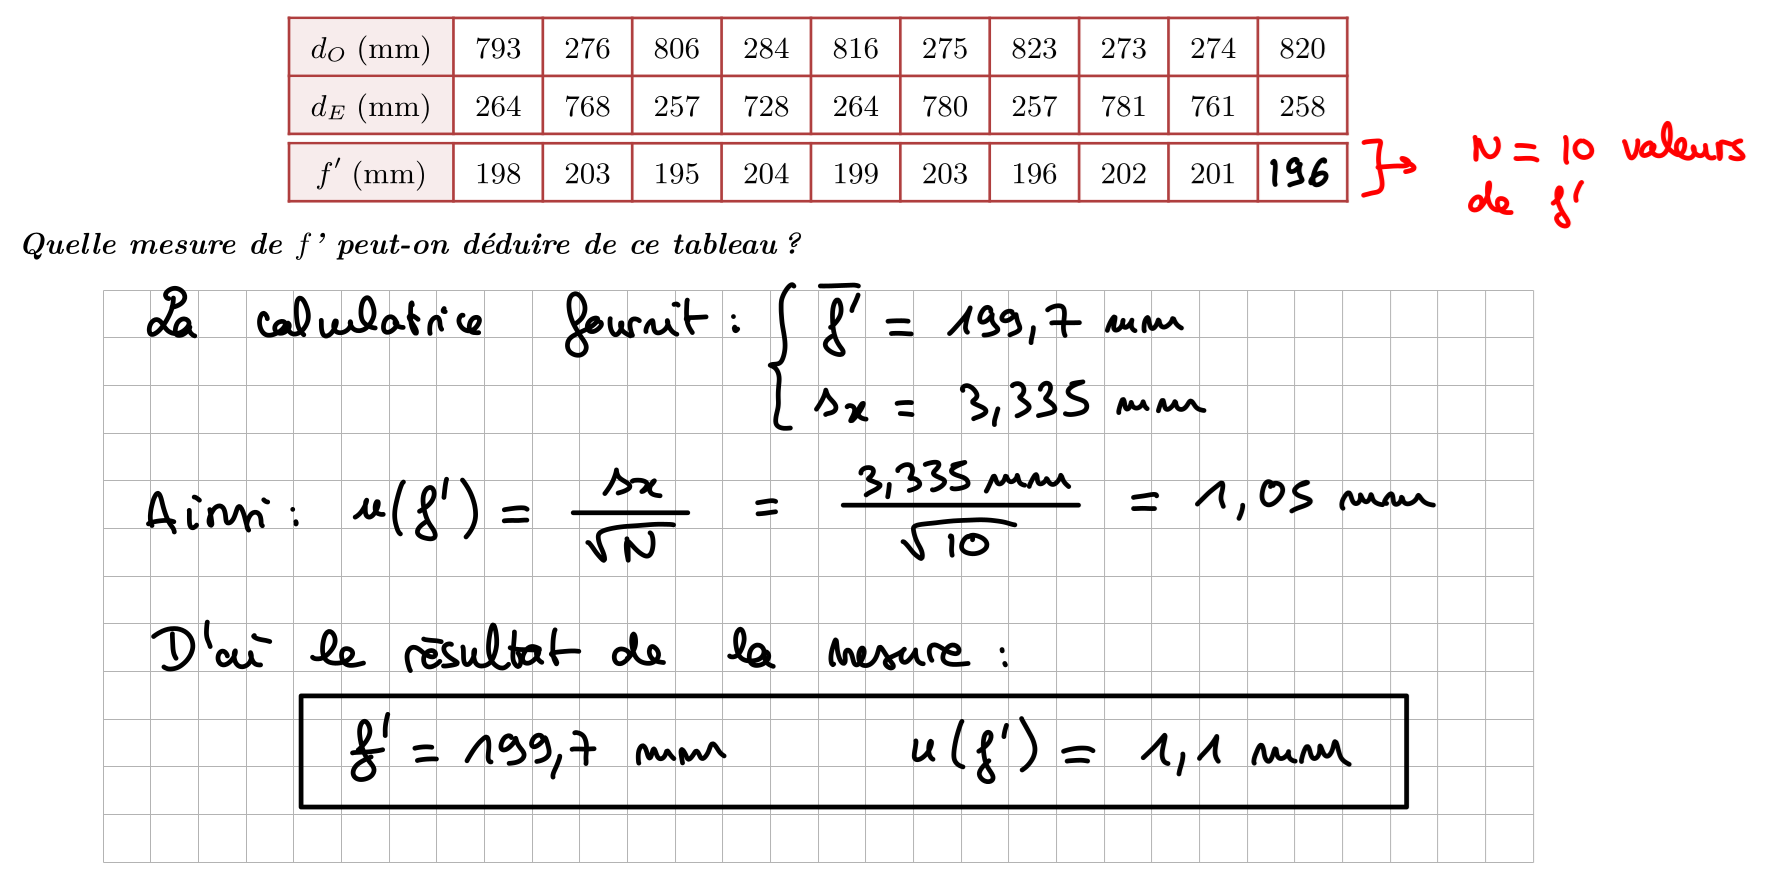 d_O (mm) 793 276 806 284 816 275 823 273 274 820
d_E (mm) 264 768 257 728 264 780 257 781 761 258
f′ (mm) 198 203 195 204 199 203 196 202 201 196
N = 10 valeurs
de f'
Quelle mesure de f' peut-on déduire de ce tableau ?
La calculatrice fournit : { f̅' = 199,7 mm
sx = 3,335 mm
Ainsi : u(f') = sx/√N = 3,335 mm/√10 = 1,05 mm
D'où le résultat de la mesure :
f' = 199,7 mm u(f') = 1,1 mm